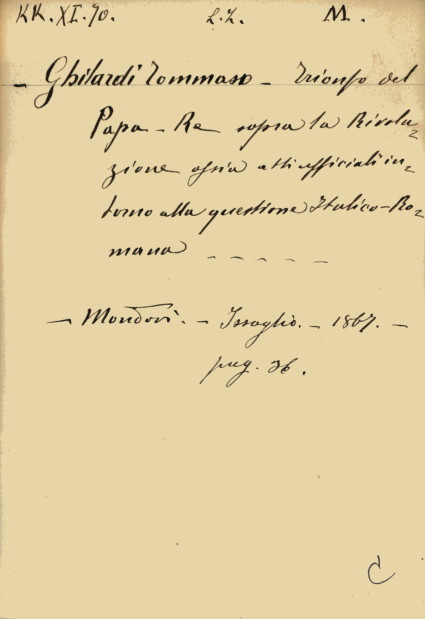 KK. XI. 70. L. Z. M.
- Ghilardi Tommaso - Trionfo del
Papa-Re sopra la Rivolu=
zione ossia atti ufficiali in=
torno alla questione Italico-Ro=
mana - - - - -
- Mondovì. - Issoglio. - 1867. -
pag. 36.
C